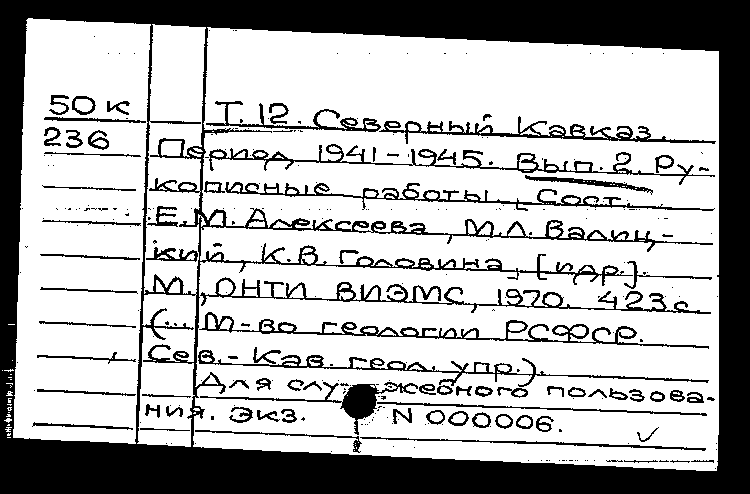 50к
Т. 12. Северный Кавказ.
236
Период 1941-1945. Вып. 2. Ру-
кописные работы. Сост.
Е.М. Алексеева, М.Л. Валиц-
кий, К.В. Головина, [и др.].
М., ОНТИ ВИЭМС, 1970. 423 с.
(... М-во геологии РСФСР.
Сев.- Кав. геол. упр.).
Для служебного пользова-
ния. Экз. N 000006.